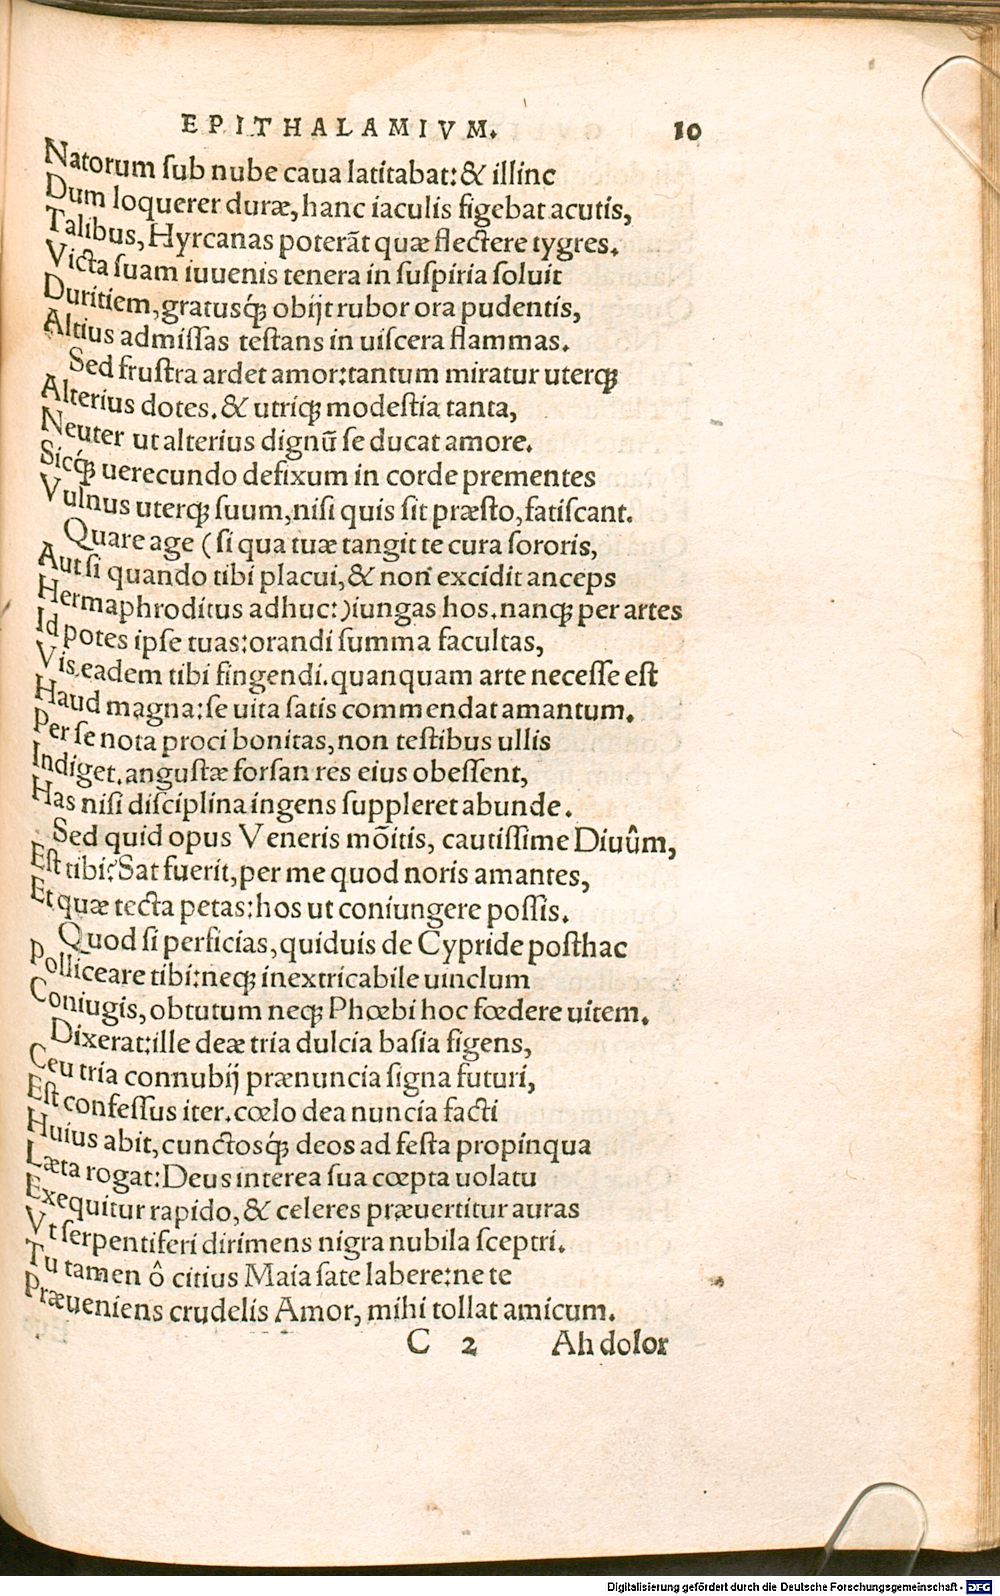 EPITHALAMIVM. 10
Natorum ſub nube caua latitabat: & illinc
Dum loquerer duræ, hanc iaculis figebat acutis,
Talibus, Hyrcanas poterãt quæ flectere tygres.
Victa ſuam iuuenis tenera in ſuſpiria ſoluit
Duritiem, gratusq́ꝫ obijt rubor ora pudentis,
Altius admiſſas teſtans in uiſcera flammas.
Sed fruſtra ardet amor: tantum miratur uterqꝫ
Alterius dotes. & utriqꝫ modeſtia tanta,
Neuter ut alterius dignũ ſe ducat amore.
Sicq́ꝫ uerecundo defixum in corde prementes
Vulnus uterqꝫ ſuum, niſi quis ſit præſto, fatiſcant.
Quare age (ſi qua tuæ tangit te cura ſororis,
Aut ſi quando tibi placui, & non excidit anceps
Hermaphroditus adhuc:) iungas hos. nanqꝫ per artes
Id potes ipſe tuas: orandi ſumma facultas,
Vis eadem tibi fingendi. quanquam arte neceſſe eſt
Haud magna: ſe uita ſatis commendat amantum.
Per ſe nota proci bonitas, non teſtibus ullis
Indiget. anguſtæ forſan res eius obeſſent,
Has niſi diſciplina ingens ſuppleret abunde.
Sed quid opus Veneris mõitis, cautiſſime Diuûm,
Eſt tibi? Sat fuerit, per me quod noris amantes,
Et quæ tecta petas: hos ut coniungere poſſis.
Quod ſi perficias, quiduis de Cypride poſthac
Polliceare tibi: neqꝫ inextricabile uinclum
Coniugis, obtutum neqꝫ Phœbi hoc fœdere uitem.
Dixerat: ille deæ tria dulcia baſia figens,
Ceu tria connubij prænuncia ſigna futuri,
Eſt confeſſus iter. cœlo dea nuncia facti
Huius abit, cunctosq́ꝫ deos ad feſta propinqua
Læta rogat: Deus interea ſua cœpta uolatu
Exequitur rapido, & celeres præuertitur auras
Vt ſerpentiferi dirimens nigra nubila ſceptri.
Tu tamen ô citius Maia ſate labere: ne te
Præueniens crudelis Amor, mihi tollat amicum.
C 2 Ah dolor
Digitalisierung gefördert durch die Deutsche Forschungsgemeinschaft - DFG